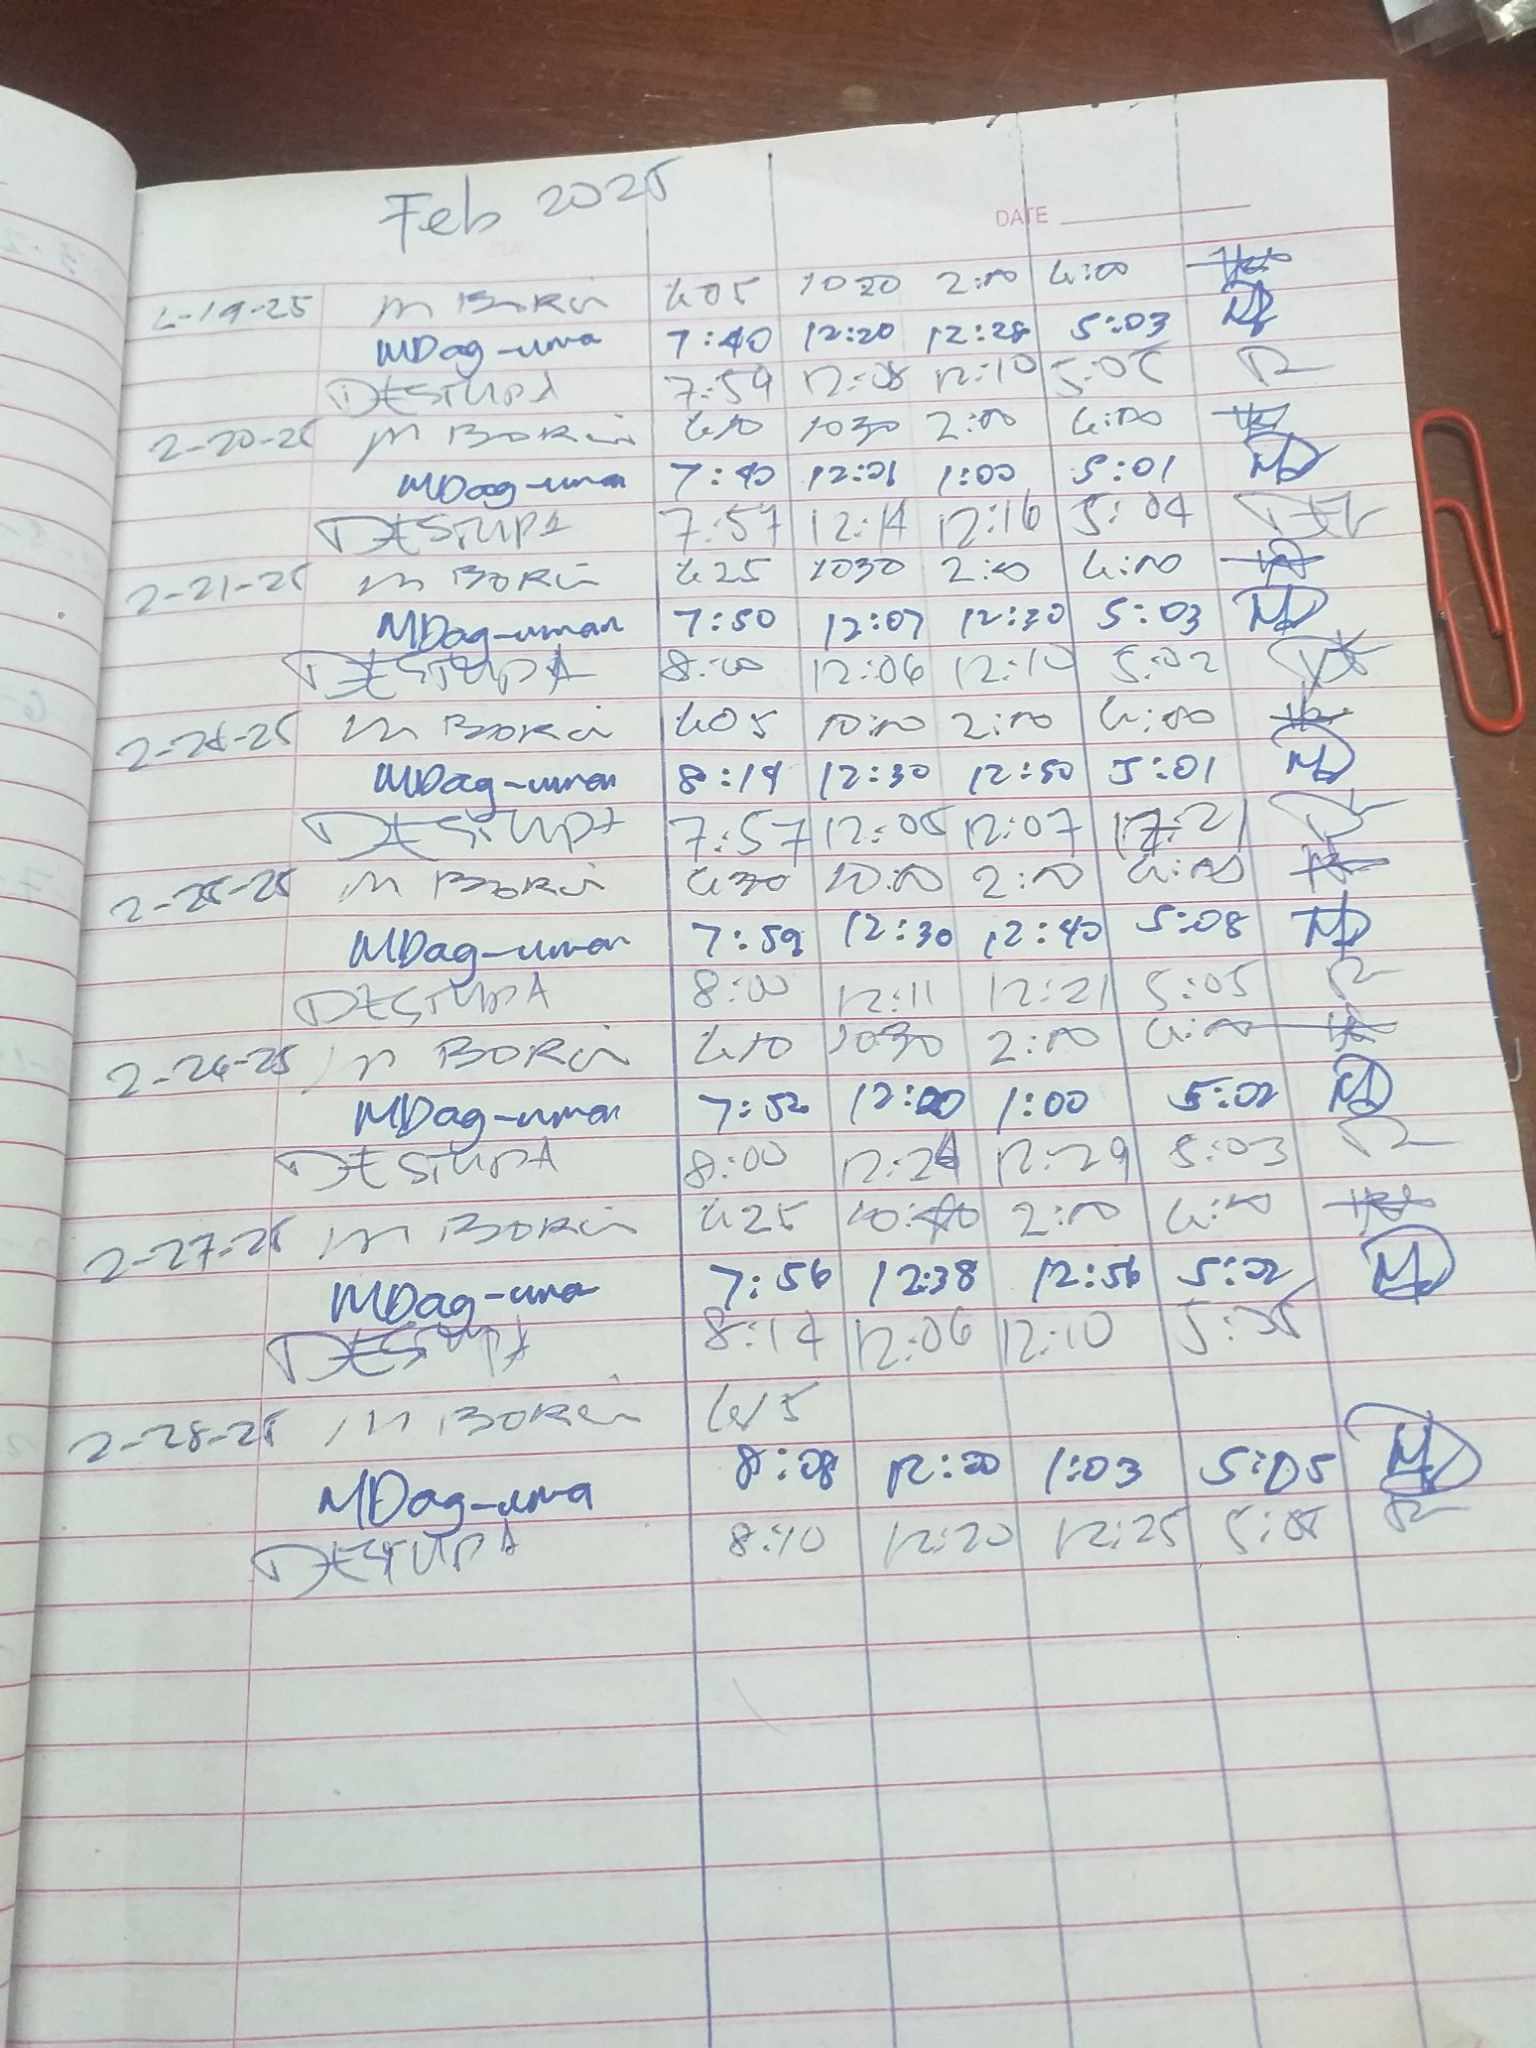 Feb 2025
DATE
2-19-25 M Borin 405 1020 2:00 4:00
MDag-uma 7:40 12:20 12:28 5:03
DESTUPA 7:59 12:08 12:10 5:05
2-20-25 M Borin 410 1030 2:00 4:00
MDag-uman 7:40 12:01 1:00 5:01 MD
DESTUPA 7:57 12:14 12:16 5:04
2-21-25 M Borin 425 1030 2:00 4:00
MDag-uman 7:50 12:07 12:30 5:03 MD
DESTUPA 8:00 12:06 12:10 5:02
M Borin 405 10:00 2:00 4:00
MDag-uman 8:14 12:30 12:50 5:01 MD
DESTUPA 7:57 12:05 12:07
2-25-25 M Borin 430 10:00 2:00 4:00
MDag-uman 7:59 12:30 12:40 5:08 MD
DESTUPA 8:00 12:11 12:21 5:05
2-26-25 M Borin 410 1030 2:00 4:00
MDag-uman 7:52 12:00 1:00 5:02 MD
DESTUPA 8:00 12:29 5:03
2-27-25 M Borin 425 2:00 4:00
MDag-uma 7:56 12:38 12:56 5:02 MD
DESTUPA 8:14 12:06 12:10
2-28-25 M Borin 415
MDag-uma 8:08 12:20 1:03 5:05 MD
DESTUPA 8:10 12:20 12:25